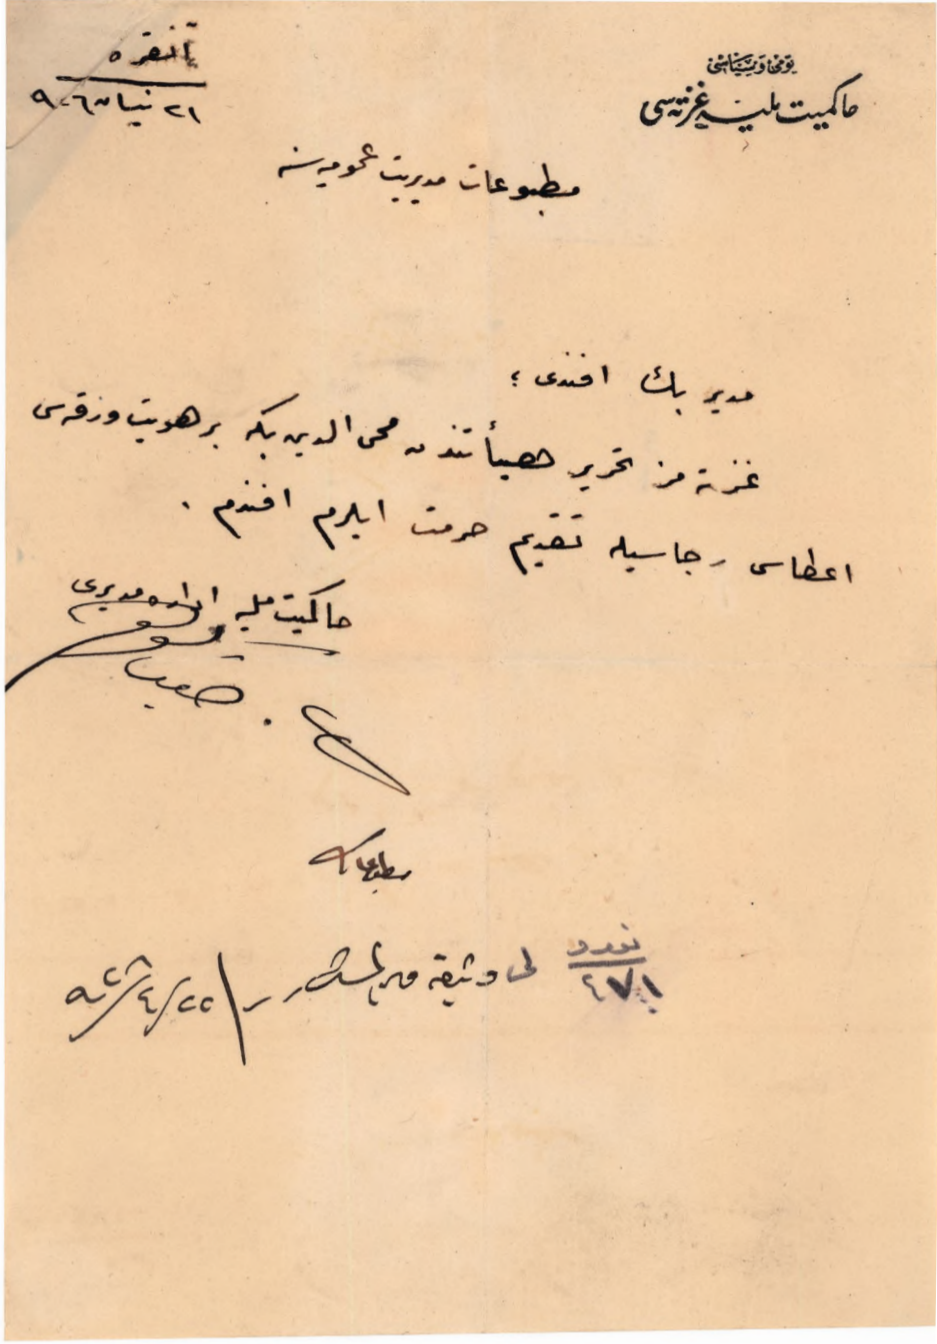 يومی و سیاسی
حاكميت مليه غزته‌سی
آنقره
٢١ نيسان ٩٢٦
مطبوعات مديريت عموميه‌سنه
مدير بك افندی ؛
غزته مزك تحرير هيأتندن محی الدين بكه بر هويت ورقه‌سی
اعطاسی رجاسيله تقديم حرمت ايلرم افندم .
حاكميت مليه اداره مديری
مطبوعات
نومرو
٤٧١
لی وثيقه ویرلمشدر
٢٢/٤/